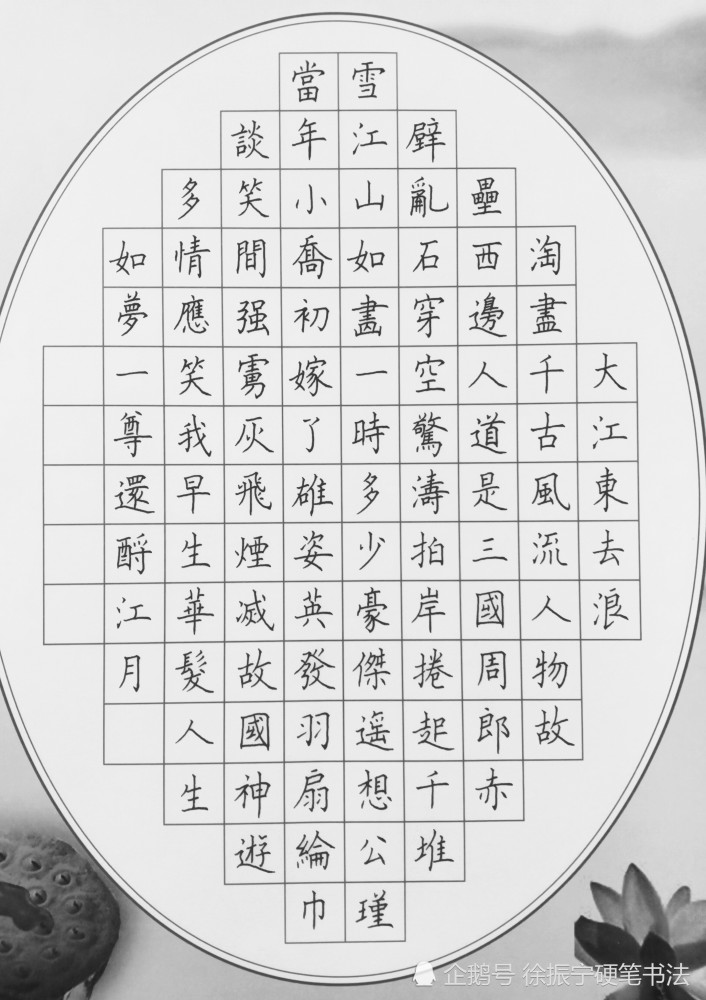 大江東去浪
淘盡千古風流人物故
壘西邊人道是三國周郎赤
壁亂石穿空驚濤拍岸捲起千堆
雪江山如畫一時多少豪傑遥想公瑾
當年小喬初嫁了雄姿英發羽扇綸巾
談笑間强虜灰飛煙滅故國神遊
多情應笑我早生華髮人生
如夢一尊還酹江月
企鹅号 徐振宁硬笔书法